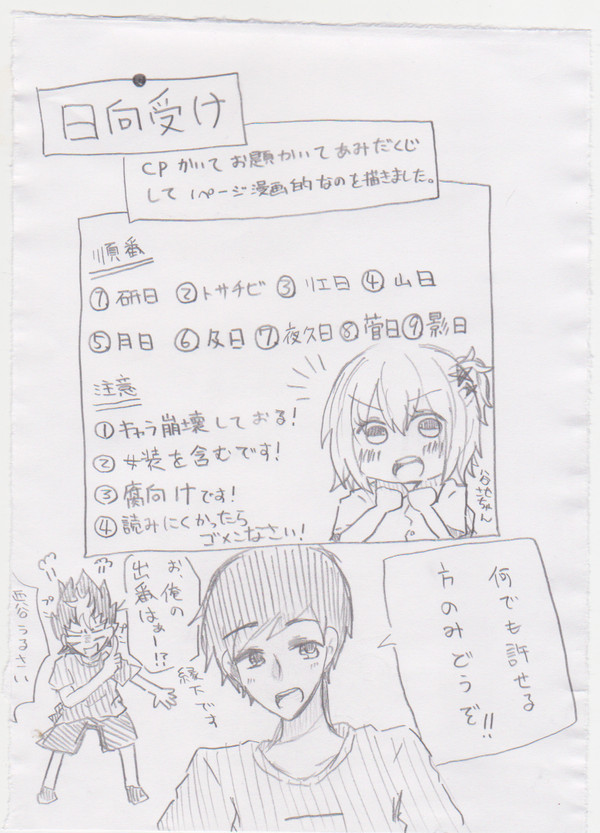 日向受け
CPかいてお題かいてあみだくじ
して1ページ漫画的なのを描きました。
順番
①研日 ②トサチビ ③リエ日 ④山日
⑤月日 ⑥及日 ⑦夜久日 ⑧菅日 ⑨影日
注意
①キャラ崩壊しておる!
②女装を含むです!
③腐向けです!
④読みにくかったら
ゴメンなさい!
谷地ちゃん
何でも許せる
方のみどうぞ!!
お、俺の
出番はぁー!?
縁下です
西谷うるさい